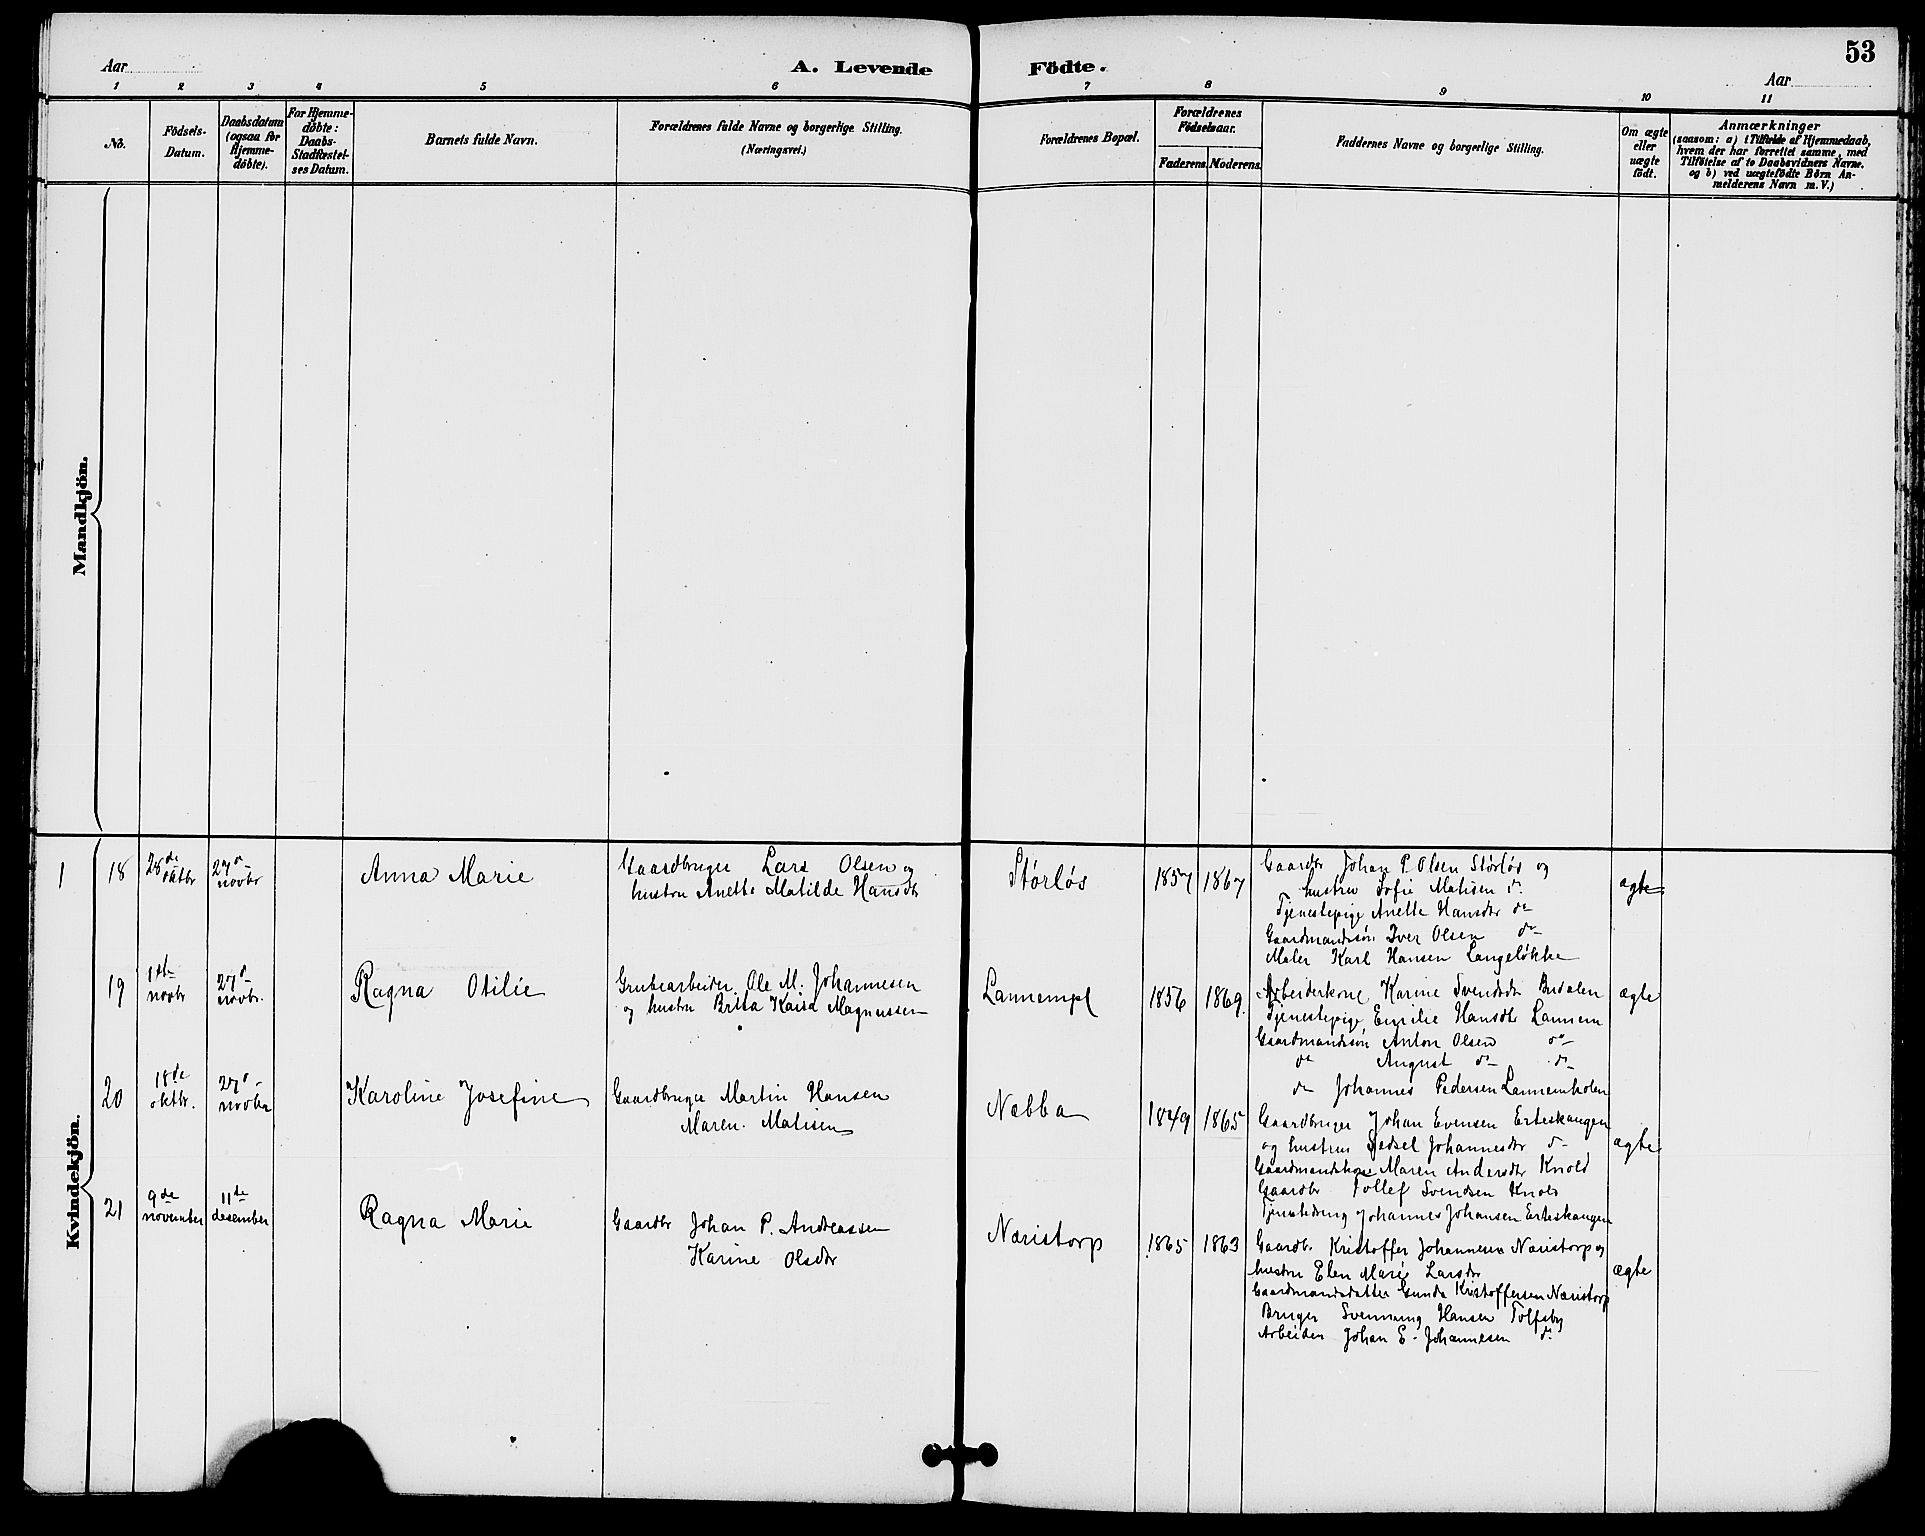 53
Aar
A. Levende Födte.
Aar
1 2 3 4 5 6 7 8 9 10 11
No.
Födsels-
Datum.
Daabsdatum
(ogsaa for
Hjemme-
döbte).
For Hjemme-
döbte:
Daabs-
Stadfæstel-
ses Datum.
Barnets fulde Navn.
Forældrenes fulde Navne og borgerlige Stilling.
(Næringsvei.)
Forældrenes Bopæl.
Forældrenes
Födselsaar.
Faderens. Moderens.
Faddernes Navne og borgerlige Stilling.
Om ægte
eller
uægte
födt.
Anmærkninger
(saasom: a) i Tilfælde af Hjemmedaab,
hvem der har forrettet samme, med
Tilföielse af to Daabsvidners Navne.
og b) ved uægtefödte Börn An-
melderens Navn m. V.)
Mandkjön.
Kvindekjön.
1
18
28de
oktbr
27d
novbr
Anna Marie
Gaardbruger Lars Olsen og
hustru Anette Matilde Hansdtr
Störlös
1857 1867
Gaardbr Johan P. Olsen Störlös og
hustru Sofie Matisen do
Tjenestepige Anette Hansdtr do
Gaardmandssön Iver Olsen do
Maler Karl Hansen Langelökke
ægte
19
1ste
novbr
27d
novbr.
Ragna Otilie
Grubearbeider Ole M. Johannesen
og hustru Britta Kaisa Magnussen
Lannempl
1856 1869.
Arbeiderkone Karine Svendsdtr Budalen
Tjenestepige Emilie Hansdtr Lannem
Gaardmandssön Anton Olsen do
do August do do
do Johannes Pedersen Lannemholen
ægte
20
18de
oktbr.
27d
novbr
Karoline Josefine
Gaardbruger Martin Hansen
Maren Matisen
Næbba
1849 1865
Gaardbruger Johan Evensen Erteskangen
og hustru Sedsel Johannesdtr do
Gaardmandskone Maren Andersdtr Knold
Gaardbr Tollef Svendsen Knold
Tjenestedreng Johannes Johansen Erteskangen
ægte
21
9de
november
11te
desember
Ragna Marie
Gaardbr Johan P. Andreassen
Karine Olsdtr
Næristorp
1865 1863
Gaardb. Kristoffer Johannesen Næristorp og
hustru Elen Marie Larsdtr
Gaardmandsdatter Gunda Kristoffersen Næristorp
Bruger Svenning Hansen Tolfsby
Arbeider Johan E. Johannesen do
ægte